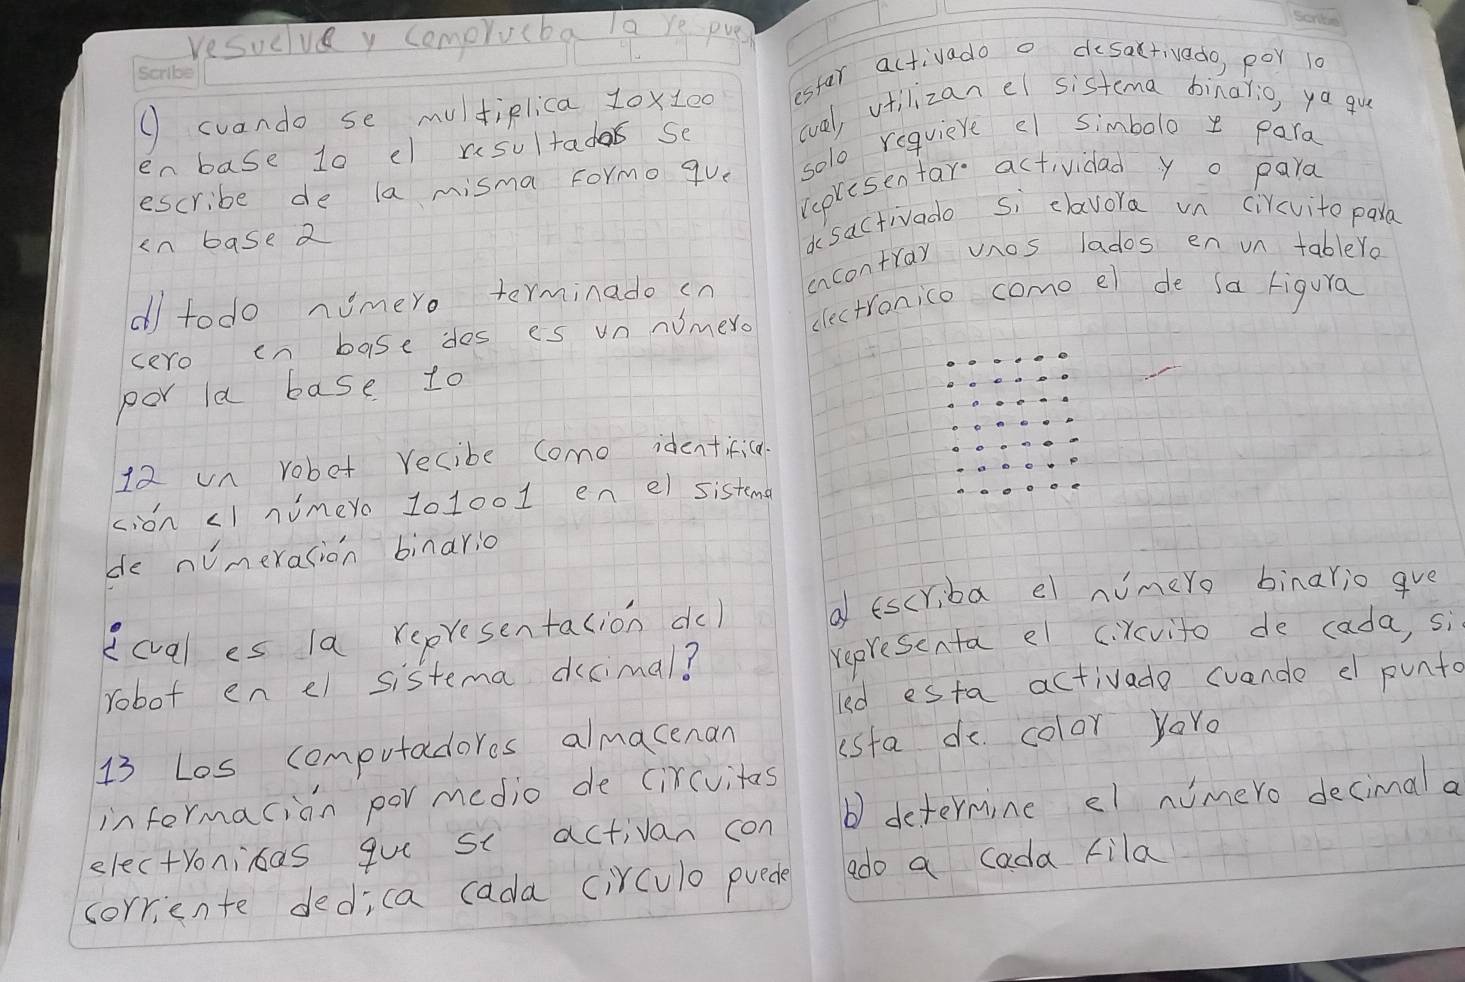 resuelve y comprueba la re pues
Scribe
c) cuando se multiplica 10x100
en base 10 el resultados se
escribe de la misma formo que
en base 2
d) todo número terminado en
cero en base dos es un número
por la base 10
12 un robet recibe como identifica-
ción el número 101001 en el sistema
de númeración binario
¿cual es la representación del
robot en el sistema decimal?
13 Los computadores almacenan
información por medio de circuitas
electronikas que se activan con
corriente dedica cada circulo puede
Scribe
estar activado o desactivado, por lo
cual, utilizan el sistema binario, ya que
solo requiere el simbolo 1 para
representar actividad y o para
desactivado si elavora un circuito para
encontrar unos lados en un tablero
electronico como el de la figura
a) escriba el número binario que
representa el circuito de cada, si
led esta activado cuando el punto
esta de color roro
b) determine el número decimal a
ado a cada fila